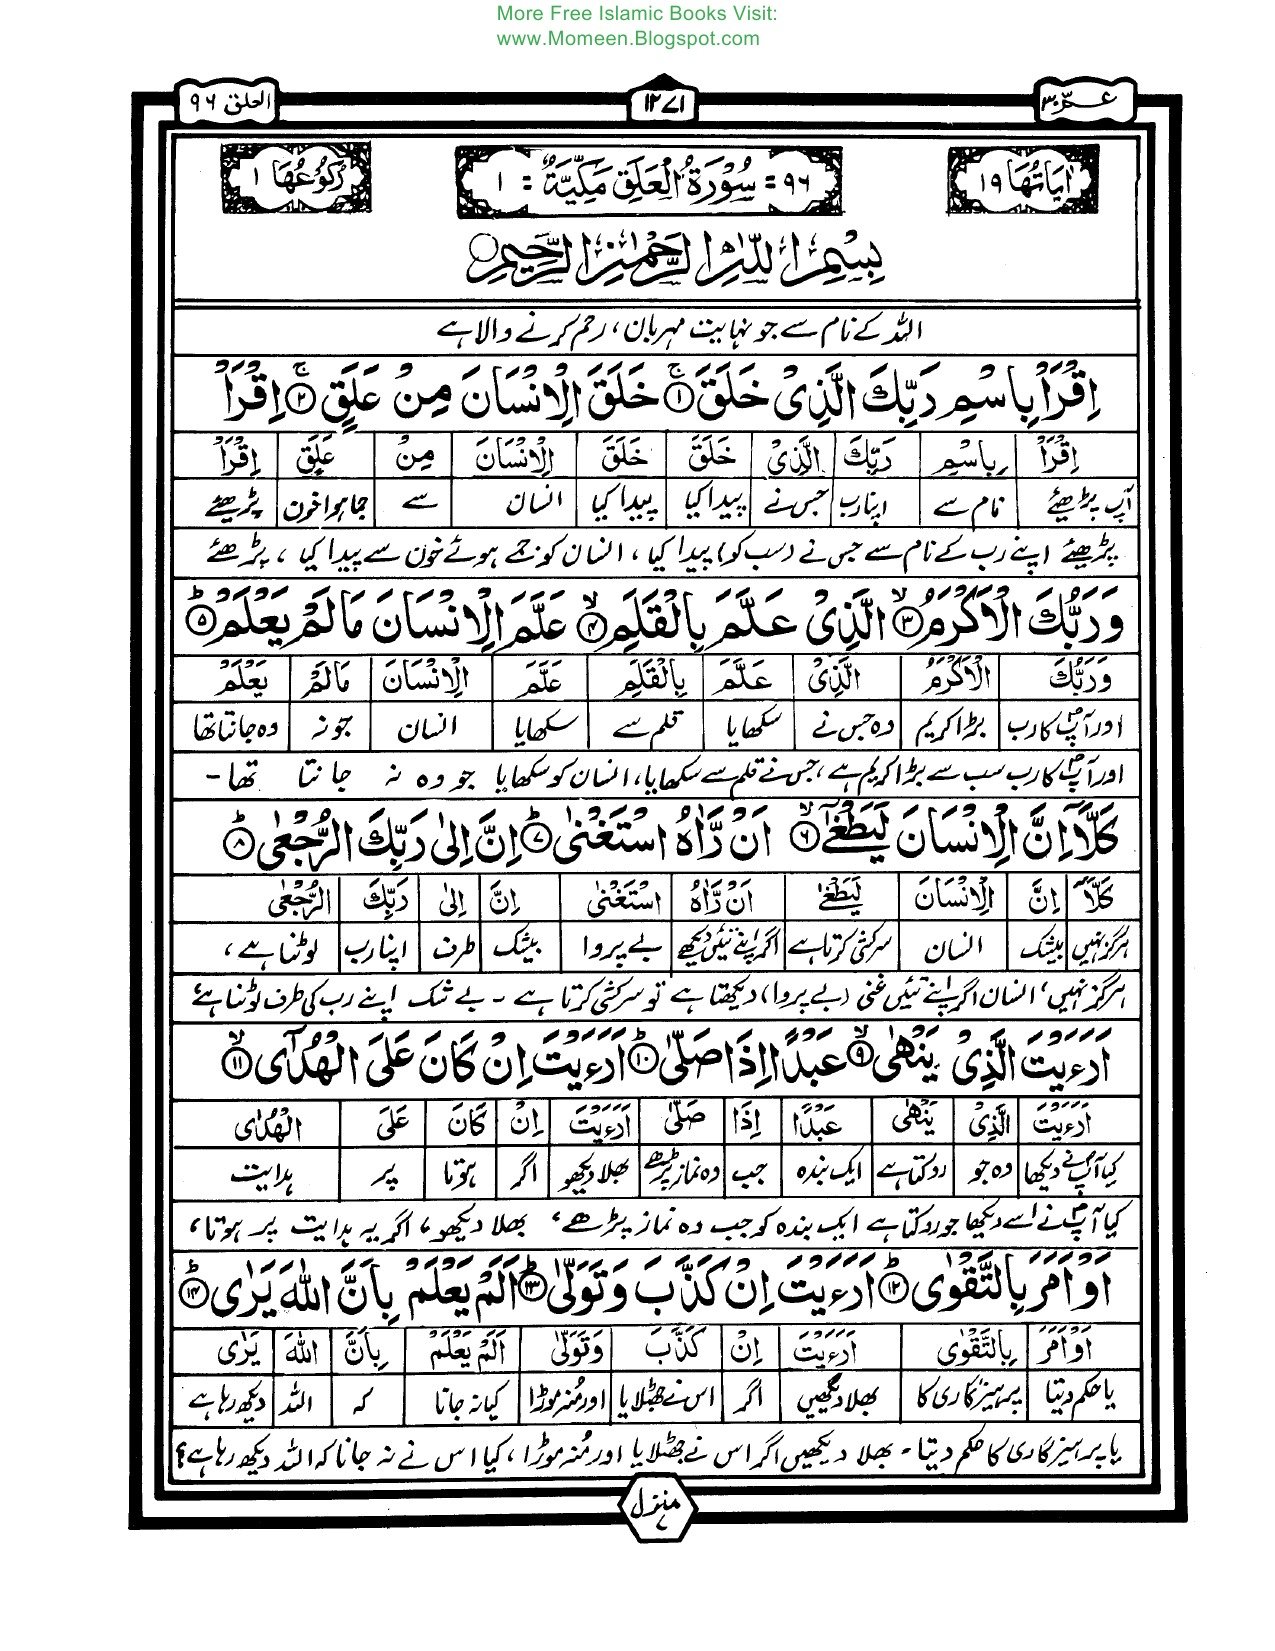 More Free Islamic Books Visit:
www.Momeen.Blogspot.com
عمّ ۳۰
۱۲۷۱
العلق ۹۶
اٰیَاتُهَا ۱۹
۹۶ = سُوْرَةُ الْعَلَقِ مَکِّیَّةٌ = ۱
رُکُوْعُهَا ۱
بِسْمِ اللّٰهِ الرَّحْمٰنِ الرَّحِیْمِ
اللہ کے نام سے جو نہایت مہربان، رحم کرنے والا ہے
اِقْرَاْ بِاسْمِ رَبِّكَ الَّذِیْ خَلَقَ ۚ﴿۱﴾ خَلَقَ الْاِنْسَانَ مِنْ عَلَقٍ ۚ﴿۲﴾ اِقْرَاْ
اِقْرَاْ بِاسْمِ رَبِّكَ الَّذِیْ خَلَقَ خَلَقَ الْاِنْسَانَ مِنْ عَلَقٍ اِقْرَاْ
آپ پڑھئے نام سے اپنا رب جس نے پیدا کیا پیدا کیا انسان سے جما ہوا خون پڑھیے
پڑھئے اپنے رب کے نام سے جس نے (سب کو) پیدا کیا، انسان کو جمے ہوئے خون سے پیدا کیا، پڑھئے
وَرَبُّكَ الْاَکْرَمُ ۙ﴿۳﴾ الَّذِیْ عَلَّمَ بِالْقَلَمِ ۙ﴿۴﴾ عَلَّمَ الْاِنْسَانَ مَا لَمْ یَعْلَمْ ؕ﴿۵﴾
وَرَبُّكَ الْاَکْرَمُ الَّذِیْ عَلَّمَ بِالْقَلَمِ عَلَّمَ الْاِنْسَانَ مَا لَمْ یَعْلَمْ
اور آپؐ کا رب بڑا کریم وہ جس نے سکھایا قلم سے سکھایا انسان جو نہ وہ جانتا تھا
اور آپؐ کا رب سب سے بڑا کریم ہے، جس نے قلم سے سکھایا، انسان کو سکھایا جو وہ نہ جانتا تھا۔
کَلَّاۤ اِنَّ الْاِنْسَانَ لَیَطْغٰۤی ۙ﴿۶﴾ اَنْ رَّاٰهُ اسْتَغْنٰی ؕ﴿۷﴾ اِنَّ اِلٰی رَبِّكَ الرُّجْعٰی ؕ﴿۸﴾
کَلَّاۤ اِنَّ الْاِنْسَانَ لَیَطْغٰۤی اَنْ رَّاٰهُ اسْتَغْنٰی اِنَّ اِلٰی رَبِّكَ الرُّجْعٰی
ہرگز نہیں بیشک انسان سرکشی کرتا ہے اگر اپنے تئیں دیکھے بے پروا بیشک طرف اپنا رب لوٹنا ہے،
ہرگز نہیں، انسان اگر اپنے تئیں غنی (بے پروا) دیکھتا ہے تو سرکشی کرتا ہے۔ بے شک اپنے رب کی طرف لوٹنا ہے
اَرَءَیْتَ الَّذِیْ یَنْهٰی ۙ﴿۹﴾ عَبْدًا اِذَا صَلّٰی ؕ﴿۱۰﴾ اَرَءَیْتَ اِنْ کَانَ عَلَی الْهُدٰۤی ۙ﴿۱۱﴾
اَرَءَیْتَ الَّذِیْ یَنْهٰی عَبْدًا اِذَا صَلّٰی اَرَءَیْتَ اِنْ کَانَ عَلَی الْهُدٰی
کیا آپؐ نے دیکھا وہ جو روکتا ہے ایک بندہ جب وہ نماز پڑھے بھلا دیکھو اگر ہوتا پر ہدایت
کیا آپؐ نے اسے دیکھا جو روکتا ہے ایک بندہ کو جب وہ نماز پڑھے، بھلا دیکھو، اگر یہ ہدایت پر ہوتا،
اَوْ اَمَرَ بِالتَّقْوٰی ؕ﴿۱۲﴾ اَرَءَیْتَ اِنْ کَذَّبَ وَتَوَلّٰی ؕ﴿۱۳﴾ اَلَمْ یَعْلَمْ بِاَنَّ اللّٰهَ یَرٰی ؕ﴿۱۴﴾
اَوْ اَمَرَ بِالتَّقْوٰی اَرَءَیْتَ اِنْ کَذَّبَ وَتَوَلّٰی اَلَمْ یَعْلَمْ بِاَنَّ اللّٰهَ یَرٰی
یا حکم دیتا پرہیزگاری کا بھلا دیکھیں اگر اس نے جھٹلایا اور منہ موڑا کیا نہ جانا کہ اللہ دیکھ رہا ہے
یا پرہیزگاری کا حکم دیتا۔ بھلا دیکھیں اگر اس نے جھٹلایا اور منہ موڑا، کیا اس نے نہ جانا کہ اللہ دیکھ رہا ہے؟
منزل ۷